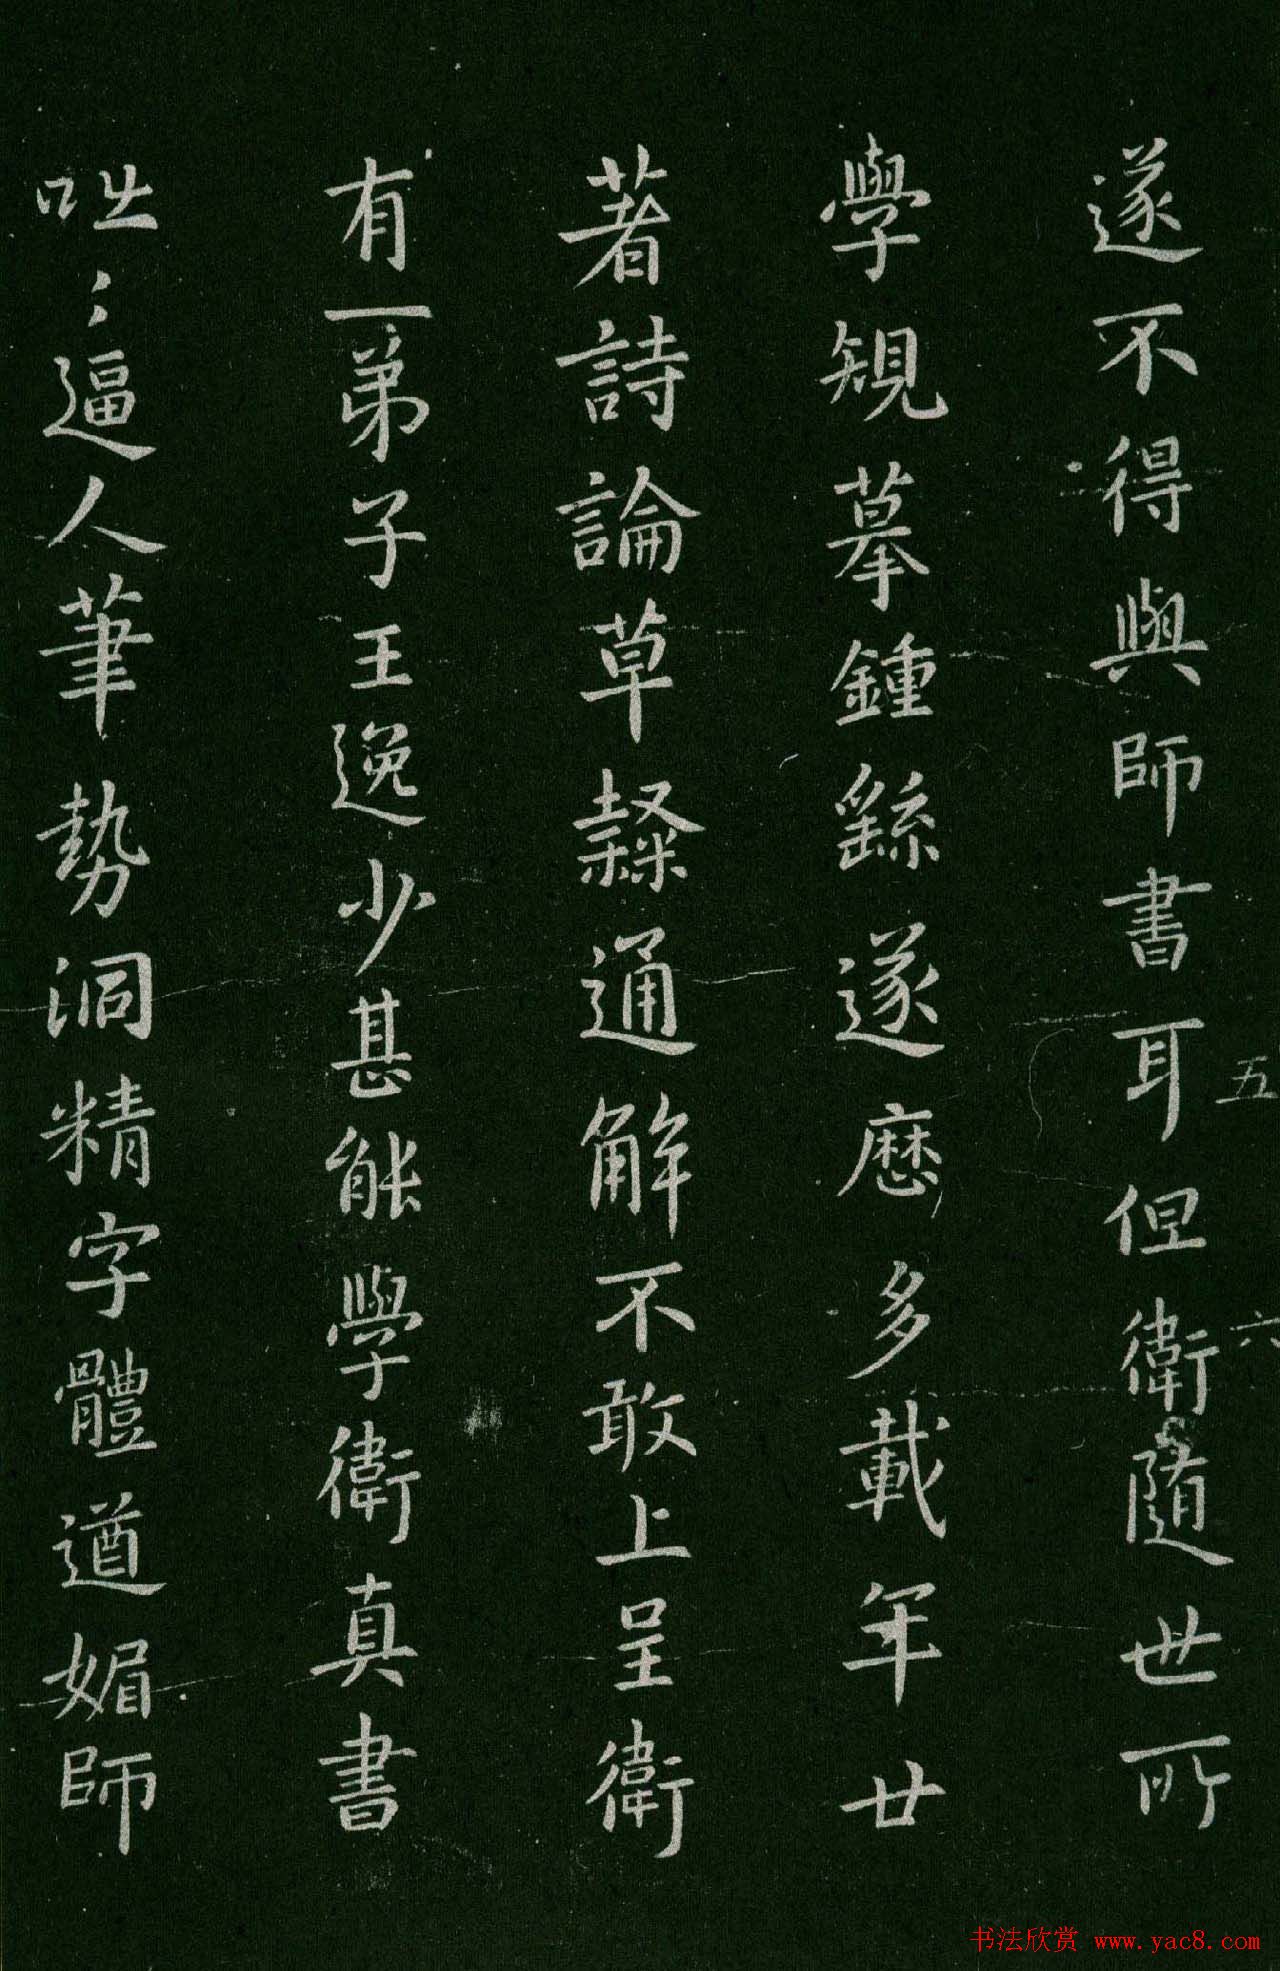 遂不得與師書耳但衛隨世所
學規摹鍾繇遂歷多載年廿
著詩論草隸通解不敢上呈衛
有一弟子王逸少甚能學衛真書
咄〻逼人筆勢洞精字體遒媚師
五
六
书法欣赏 www.yac8.com